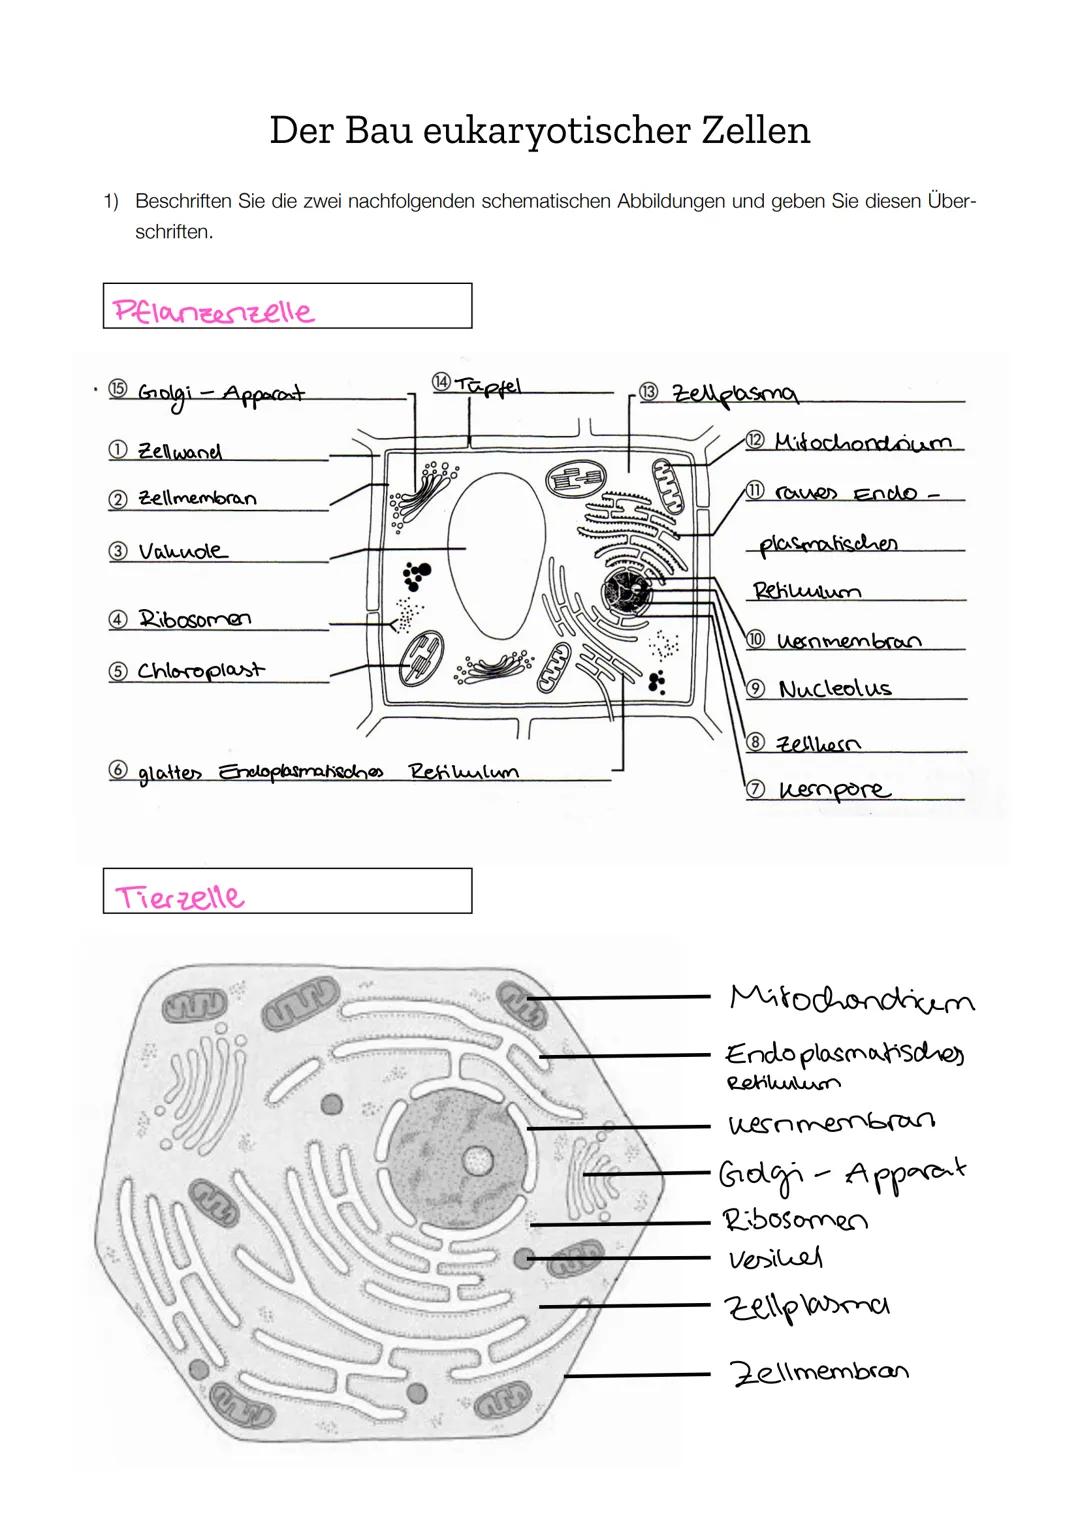 Der Bau eukaryotischer Zellen
1) Beschriften Sie die zwei nachfolgenden schematischen Abbildungen und geben Sie diesen Über-
schriften.
Pflanzenzelle
⑮ Golgi - Apparat
⑭ Tüpfel
⑬ Zellplasma
① Zellwand
⑫ Mitochondrium
② Zellmembran
⑪ raues Endo -
plasmatisches
Retikulum
③ Vakuole
④ Ribosomen
⑩ Kernmembran
⑤ Chloroplast
⑨ Nucleolus
⑧ Zellkern
⑥ glattes Endoplasmatisches Retikulum
⑦ Kernpore
Tierzelle
Mitochondrium
Endoplasmatisches
Retikulum
Kernmembran
Golgi - Apparat
Ribosomen
Vesikel
Zellplasma
Zellmembran